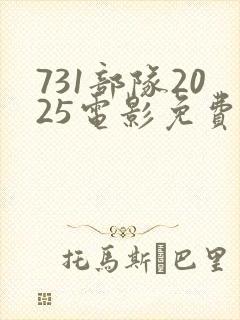 731部隊20
25電影免費
托馬斯·巴里